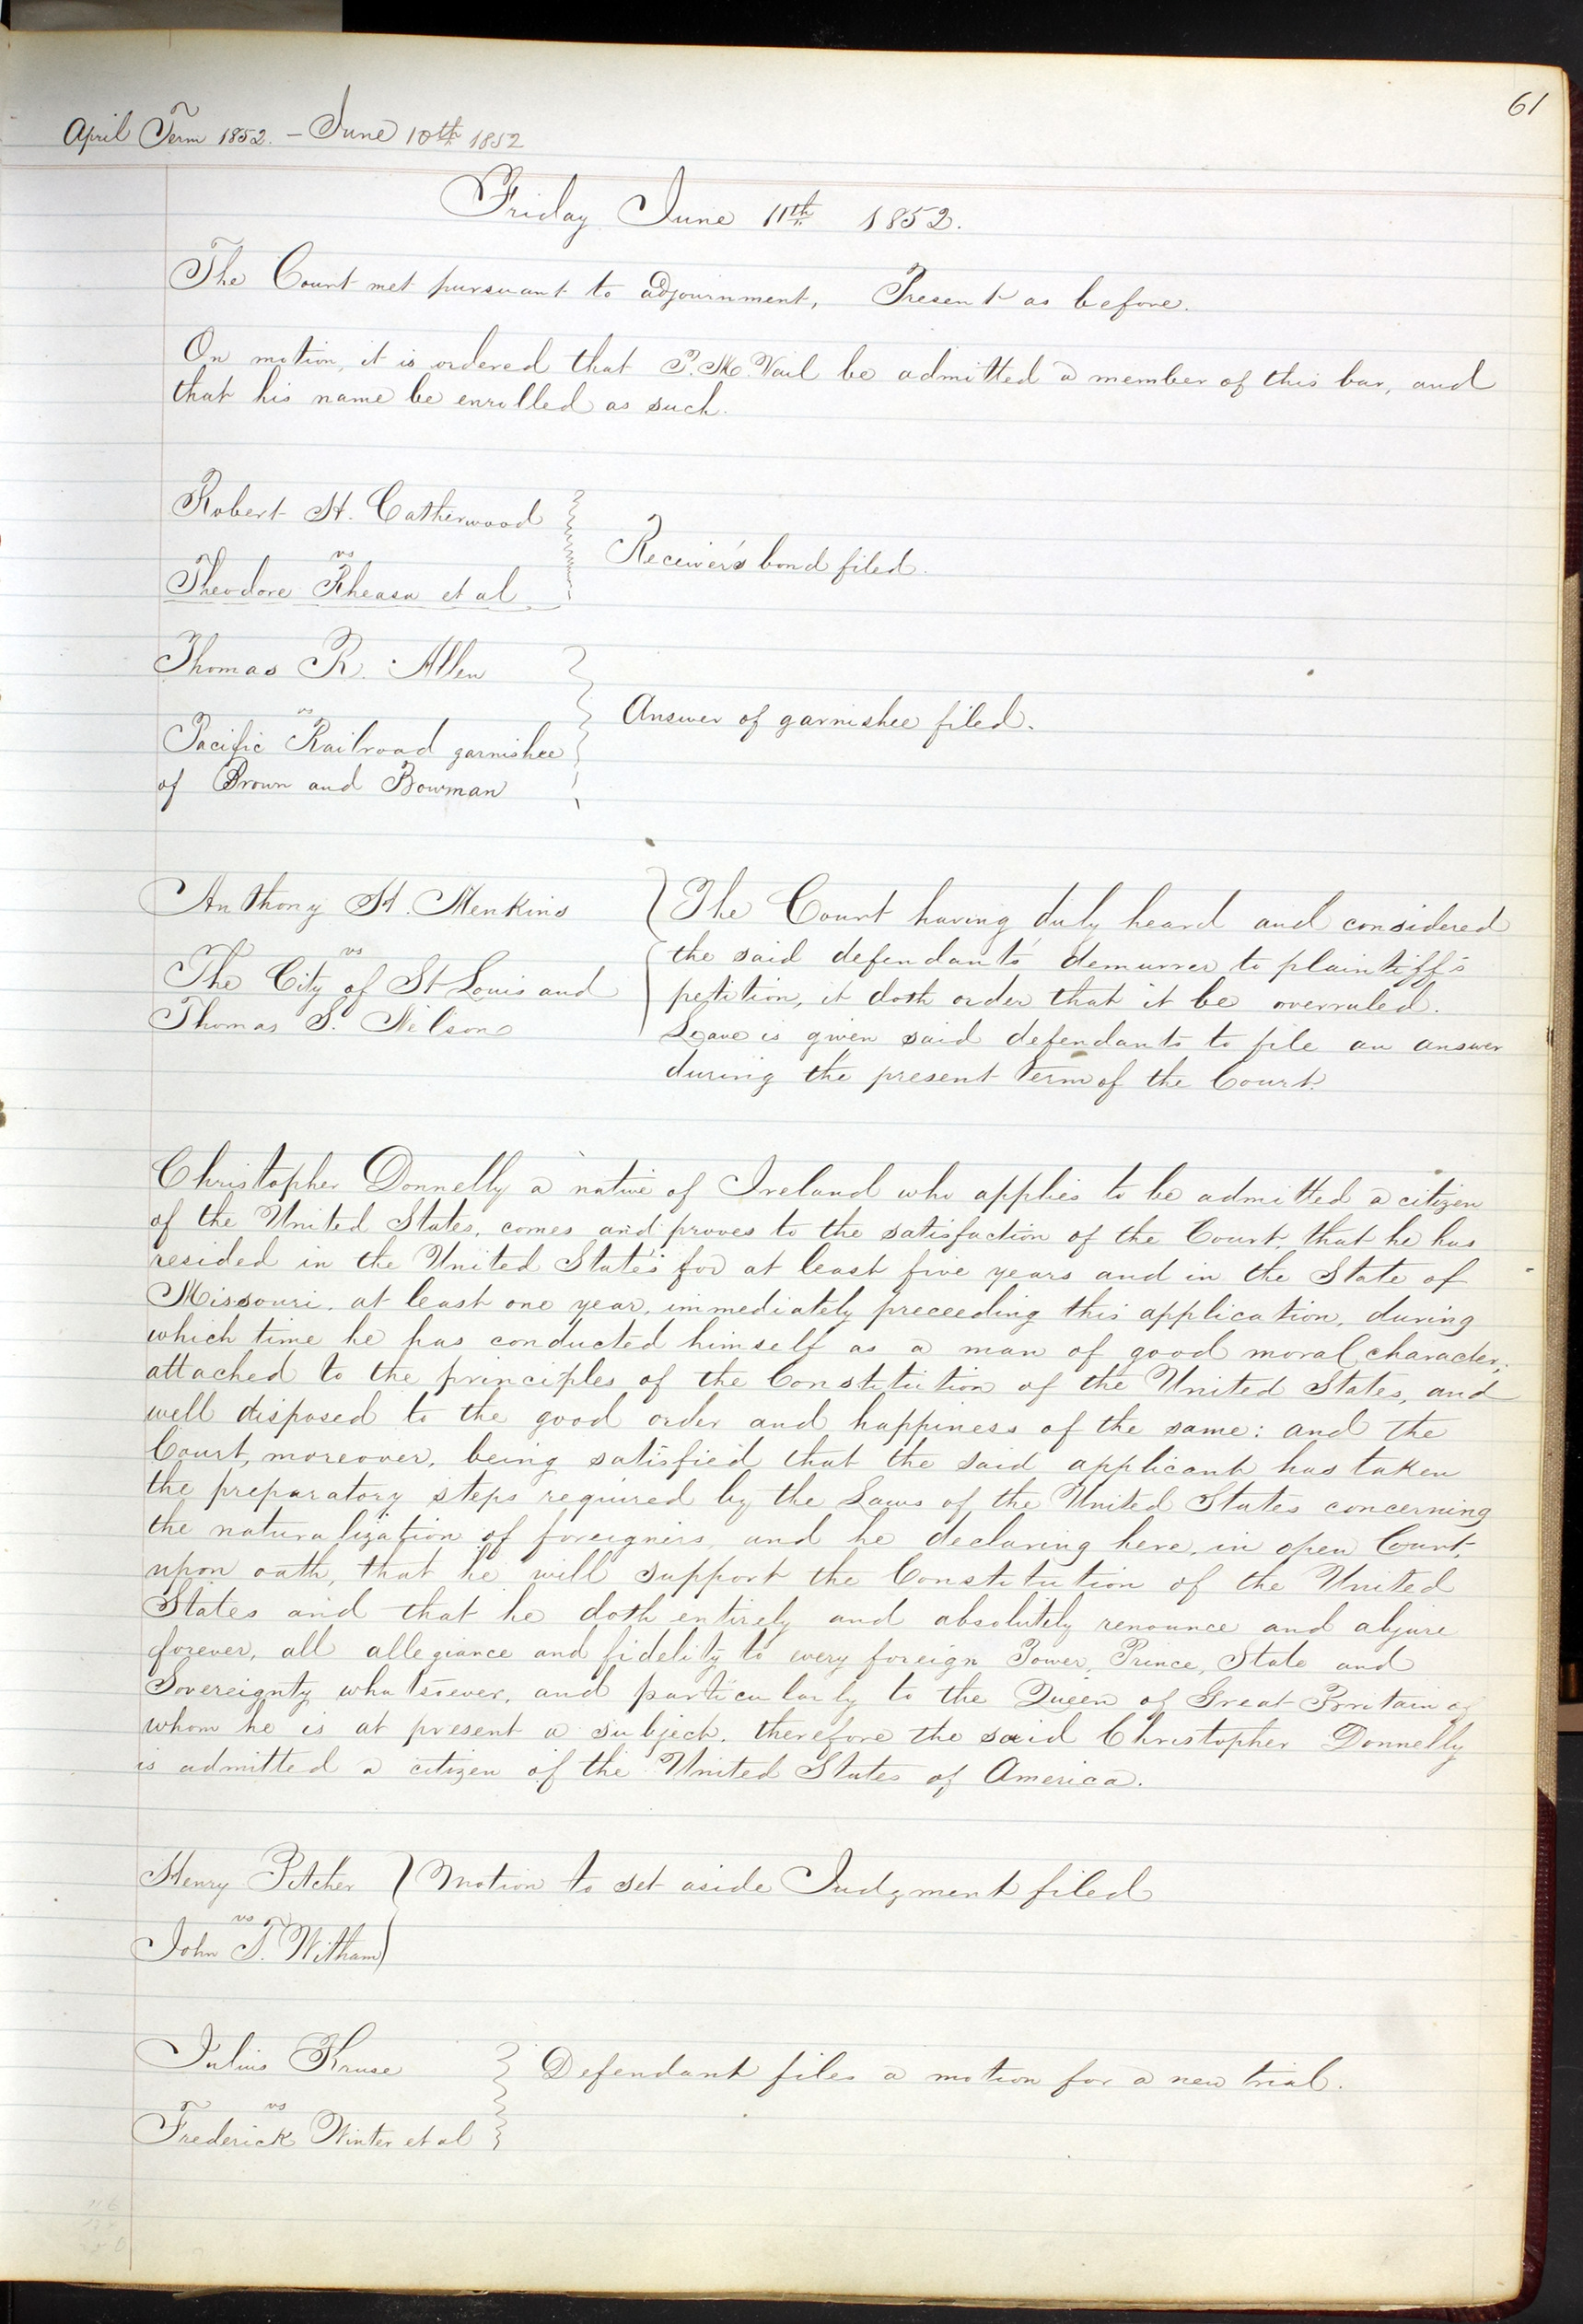 61
April Term 1852. – June 10th 1852
Friday June 11th 1852.
The Court met pursuant to adjournment, Present as before.
On motion, it is ordered that P. M. Vail be admitted a member of this bar, and
that his name be enrolled as such.
Robert H. Catherwood
vs
Theodore et al
Receiver's bond filed.
Thomas R. Allen
vs
Pacific Railroad garnishee
of Brown and Bowman
Answer of garnishee filed.
Anthony H. Menkins
vs
The City of St Louis and
Thomas S. Nelson
The Court having duly heard and considered
the said defendants' demurrer to plaintiff's
petition, it doth order that it be overruled.
Leave is given said defendants to file an answer
during the present term of the Court.
Christopher Donnelly a native of Ireland who applies to be admitted a citizen
of the United States, comes and proves to the satisfaction of the Court, that he has
resided in the United States for at least five years and in the State of
Missouri, at least one year, immediately preceeding this application, during
which time he has conducted himself as a man of good moral character,
attached to the principles of the Constitution of the United States, and
well disposed to the good order and happiness of the same: and the
Court, moreover, being satisfied that the said applicant has taken
the preparatory steps required by the Laws of the United States concerning
the naturalization of foreigners, and he declaring here, in open Court,
upon oath, that he will support the Constitution of the United
States and that he doth entirely and absolutely renounce and abjure
forever, all allegiance and fidelity to every foreign Power, Prince, State and
Sovereignty whatsoever, and particularly to the Queen of Great Britain of
whom he is at present a subject, therefore the said Christopher Donnelly
is admitted a citizen of the United States of America.
Henry Pitcher
vs
John T. Witham
Motion to set aside Judgment filed
Julius Kruse
vs
Frederick Winter et al
Defendant files a motion for a new trial.